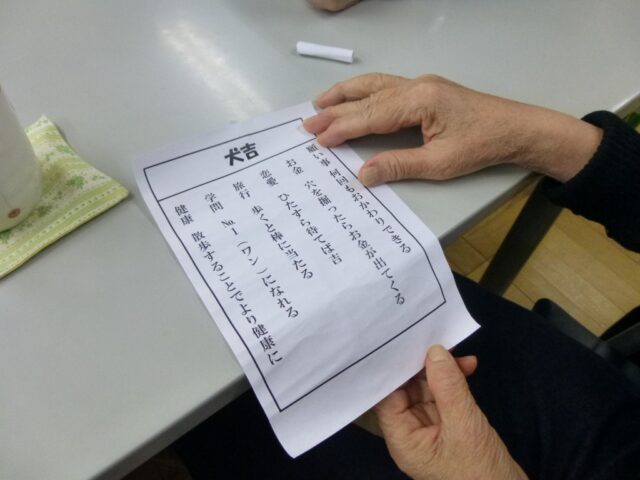 犬吉
願い事 何回もおかわりできる
お金 穴を掘ったらお金が出てくる
恋愛 ひたすら待てば吉
旅行 歩くと棒に当たる
学問 №1（ワン）になれる
健康 散歩することでより健康に